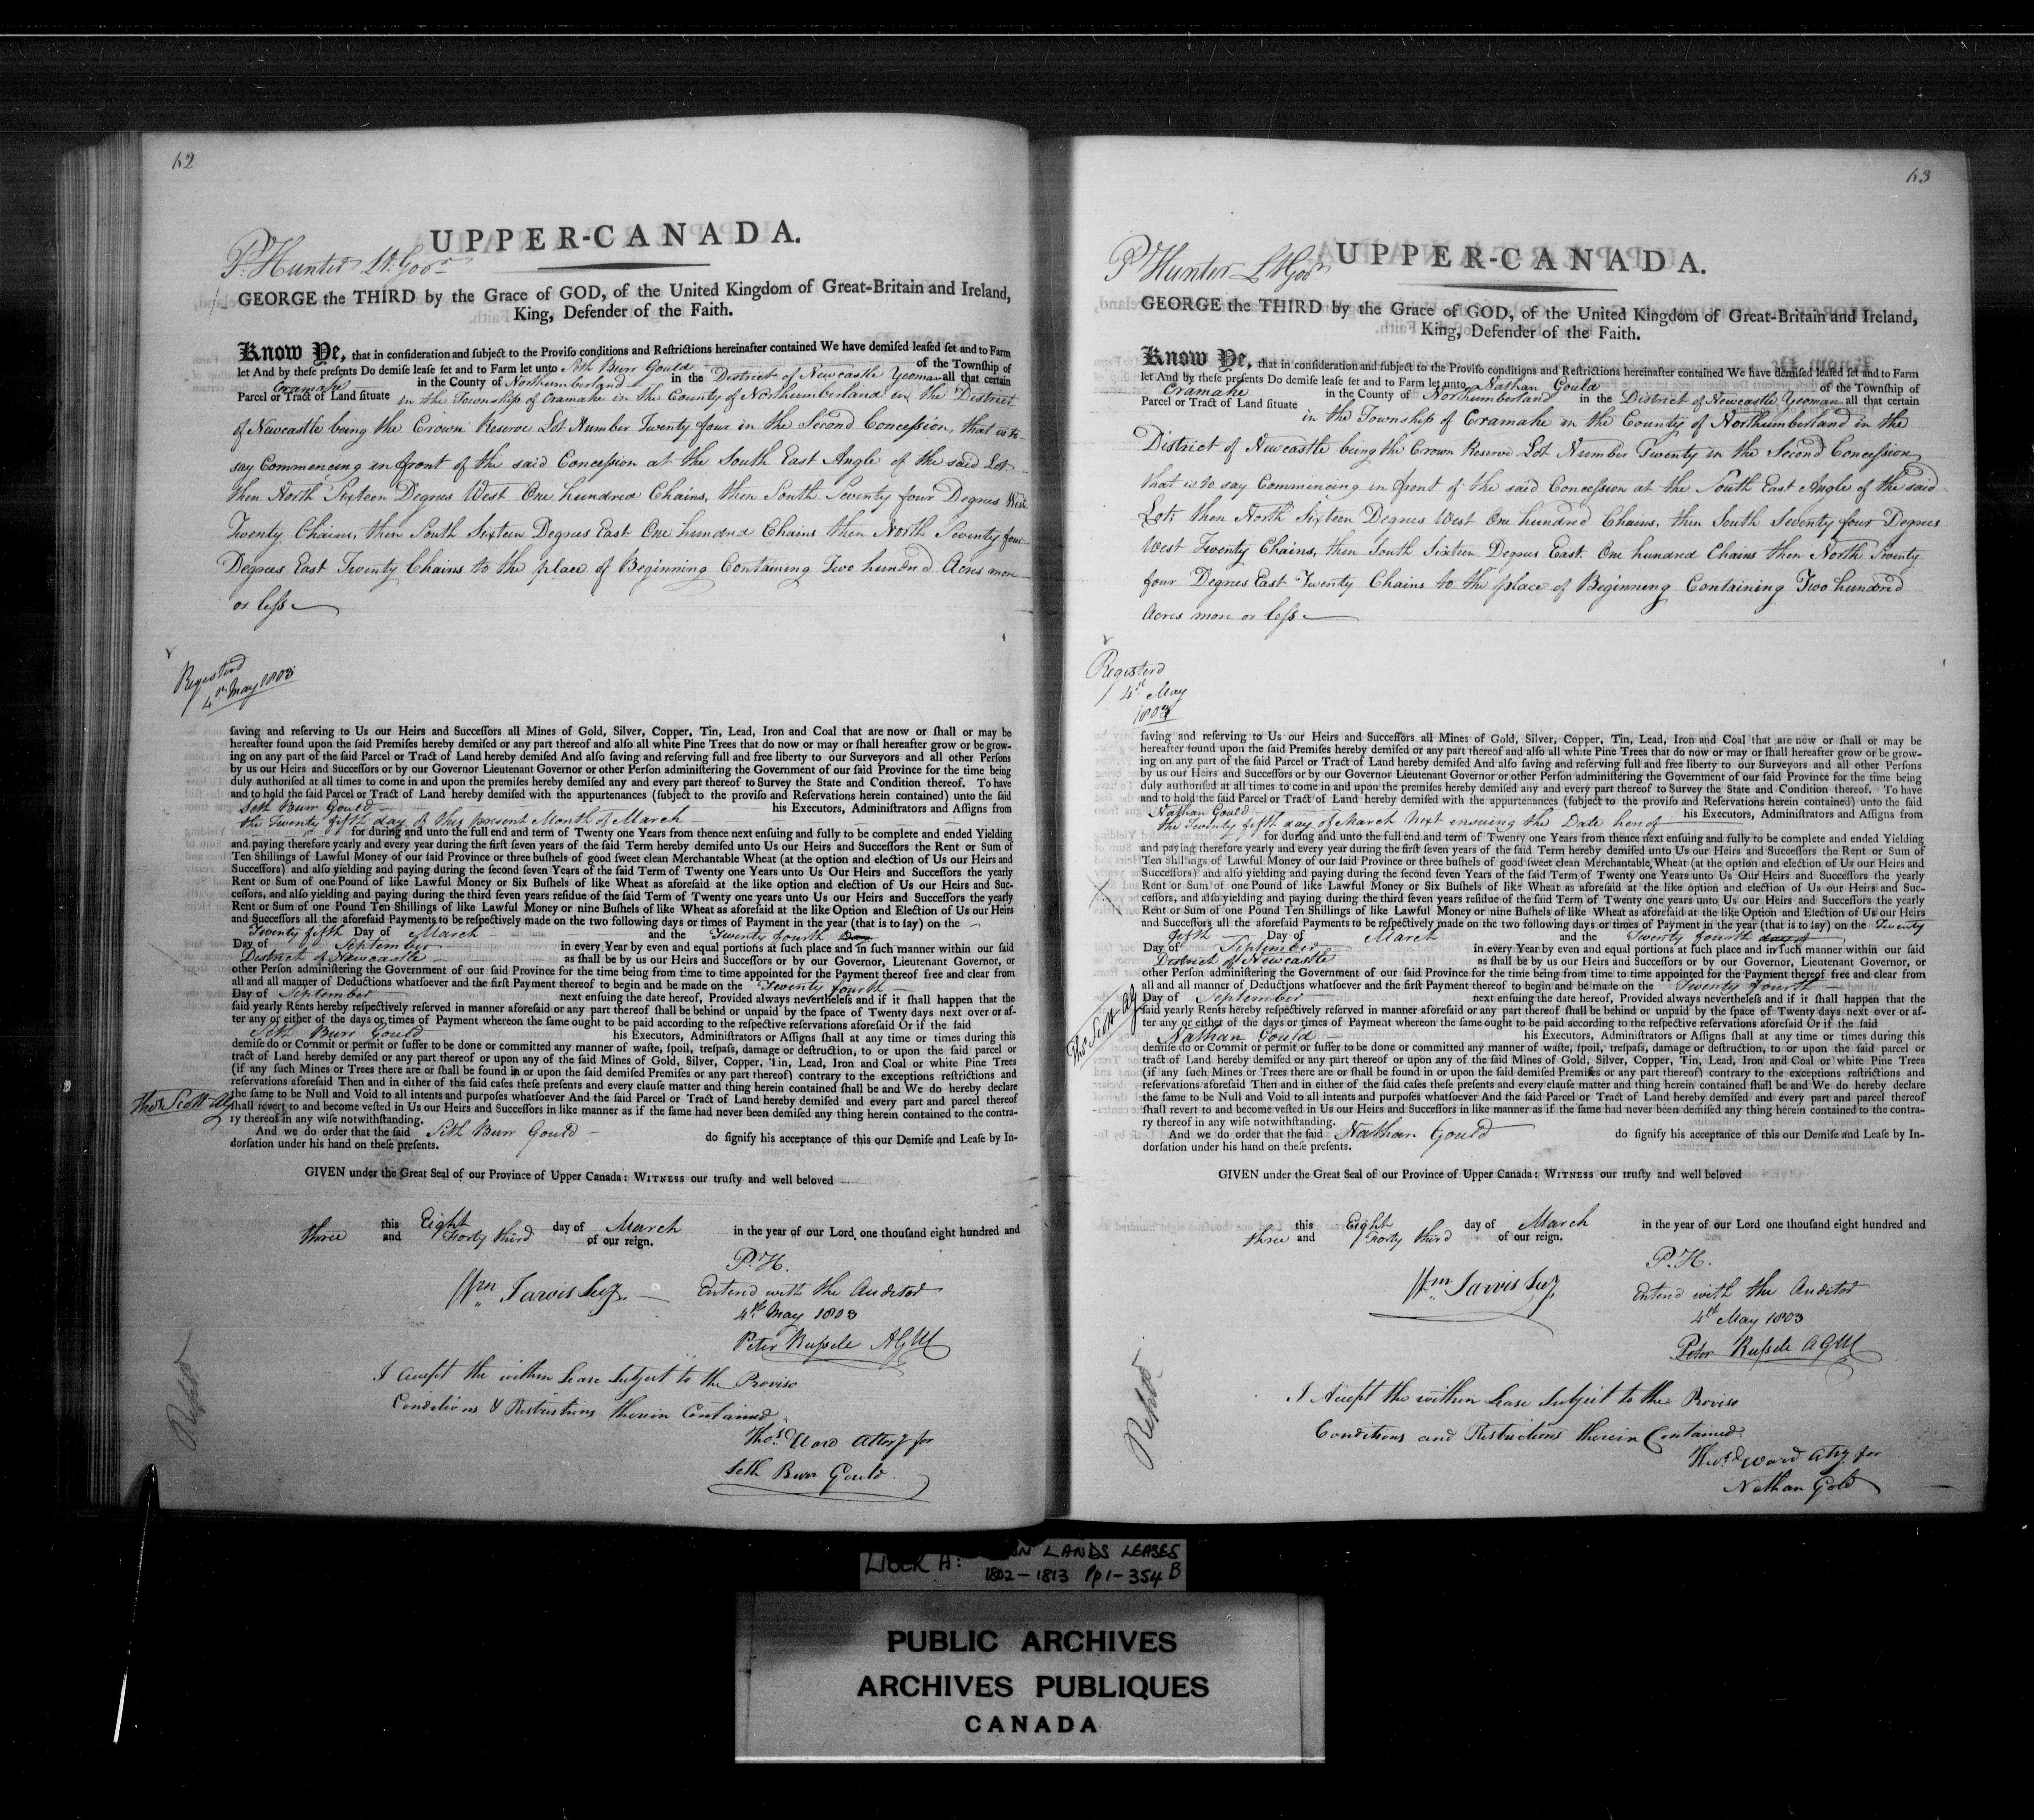 62
UPPER-CANADA.
P. Hunter Lt. Govr.
GEORGE the THIRD by the Grace of GOD, of the United Kingdom of Great-Britain and Ireland,
King, Defender of the Faith.
Know Ye, that in conſideration and ſubject to the Proviſo conditions and Reſtrictions hereinafter contained We have demiſed leaſed ſet and to Farm
let And by theſe preſents Do demiſe leaſe ſet and to Farm let unto Seth Burr Gould of the Townſhip of
Cramahe in the County of Northumberland in the District of Newcastle Yeoman all that certain
Parcel or Tract of Land ſituate in the Township of Cramahe in the County of Northumberland in the District
of Newcastle being the Crown Reserve Lot Number Twenty four in the Second Conceſsion, that is to
say Commencing in front of the said Conceſsion at the South East Angle of the said Lot
then North Sixteen Degrees West One hundred Chains, then South Seventy four Degrees West
Twenty Chains, then South Sixteen Degrees East One hundred Chains then North Seventy four
Degrees East Twenty Chains to the place of Beginning Containing Two hundred Acres more
or leſs
Registerd
4th May 1803
ſaving and reſerving to Us our Heirs and Succeſſors all Mines of Gold, Silver, Copper, Tin, Lead, Iron and Coal that are now or ſhall or may be
hereafter found upon the ſaid Premiſes hereby demiſed or any part thereof and alſo all white Pine Trees that do now or may or ſhall hereafter grow or be grow-
ing on any part of the ſaid Parcel or Tract of Land hereby demiſed And alſo ſaving and reſerving full and free liberty to our Surveyors and all other Perſons
by us our Heirs and Succeſſors or by our Governor Lieutenant Governor or other Perſon adminiſtering the Government of our ſaid Province for the time being
duly authoriſed at all times to come in and upon the premiſes hereby demiſed any and every part thereof to Survey the State and Condition thereof. To have
and to hold the ſaid Parcel or Tract of Land hereby demiſed with the appurtenances (ſubject to the proviſo and Reſervations herein contained) unto the ſaid
Seth Burr Gould his Executors, Adminiſtrators and Aſſigns from
the Twenty fifth day of this present Month of March
for during and unto the full end and term of Twenty one Years from thence next enſuing and fully to be complete and ended Yielding
and paying therefore yearly and every year during the firſt ſeven years of the ſaid Term hereby demiſed unto Us our Heirs and Succeſſors the Rent or Sum of
Ten Shillings of Lawful Money of our ſaid Province or three buſhels of good ſweet clean Merchantable Wheat (at the option and election of Us our Heirs and
Succeſſors) and alſo yielding and paying during the ſecond ſeven Years of the ſaid Term of Twenty one Years unto Us Our Heirs and Succeſſors the yearly
Rent or Sum of one Pound of like Lawful Money or Six Buſhels of like Wheat as aforeſaid at the like option and election of Us our Heirs and Suc-
ceſſors, and alſo yielding and paying during the third ſeven years reſidue of the ſaid Term of Twenty one years unto Us our Heirs and Succeſſors the yearly
Rent or Sum of one Pound Ten Shillings of like Lawful Money or nine Buſhels of like Wheat as aforeſaid at the like Option and Election of Us our Heirs
and Succeſſors all the aforeſaid Payments to be reſpectively made on the two following days or times of Payment in the year (that is to ſay) on the
Twenty fifth Day of March and the Twenty fourth Day
Day of September in every Year by even and equal portions at ſuch place and in ſuch manner within our ſaid
District of Newcastle as ſhall be by us our Heirs and Succeſſors or by our Governor, Lieutenant Governor, or
other Perſon adminiſtering the Government of our ſaid Province for the time being from time to time appointed for the Payment thereof free and clear from
all and all manner of Deductions whatſoever and the firſt Payment thereof to begin and be made on the Twenty fourth
Day of September next enſuing the date hereof, Provided always nevertheleſs and if it ſhall happen that the
ſaid yearly Rents hereby reſpectively reſerved in manner aforeſaid or any part thereof ſhall be behind or unpaid by the ſpace of Twenty days next over or af-
ter any or either of the days or times of Payment whereon the ſame ought to be paid according to the reſpective reſervations aforeſaid Or if the ſaid
Seth Burr Gould his Executors, Adminiſtrators or Aſſigns ſhall at any time or times during this
demiſe do or Commit or permit or ſuffer to be done or committed any manner of waſte, ſpoil, treſpaſs, damage or deſtruction, to or upon the ſaid parcel or
tract of Land hereby demiſed or any part thereof or upon any of the ſaid Mines of Gold, Silver, Copper, Tin, Lead, Iron and Coal or white Pine Trees
(if any ſuch Mines or Trees there are or ſhall be found in or upon the ſaid demiſed Premiſes or any part thereof) contrary to the exceptions reſtrictions and
reſervations aforeſaid Then and in either of the ſaid caſes theſe preſents and every clauſe matter and thing herein contained ſhall be and We do hereby declare
the ſame to be Null and Void to all intents and purpoſes whatſoever And the ſaid Parcel or Tract of Land hereby demiſed and every part and parcel thereof
Thos. Scott Ag. ſhall revert to and become veſted in Us our Heirs and Succeſſors in like manner as if the ſame had never been demiſed any thing herein contained to the contra-
ry thereof in any wiſe notwithſtanding.
And we do order that the ſaid Seth Burr Gould do ſignify his acceptance of this our Demiſe and Leaſe by In-
dorſation under his hand on theſe preſents.
GIVEN under the Great Seal of our Province of Upper Canada: WITNESS our truſty and well beloved
this Eight day of March in the year of our Lord one thouſand eight hundred and
three and Forty third of our reign.
P. H.
Wm Jarvis Secy.
Enterd with the Auditor
4th May 1803
Peter Ruſsell AGM
I accept the within Lease subject to the Proviso
Conditions & Restrictions therein Contained
Thos. Ward Attory for
Seth Burr Gould
63
UPPER-CANADA.
P. Hunter Lt Govr
GEORGE the THIRD by the Grace of GOD, of the United Kingdom of Great-Britain and Ireland,
King, Defender of the Faith.
Know Ye, that in conſideration and ſubject to the Proviſo conditions and Reſtrictions hereinafter contained We have demiſed leaſed ſet and to Farm
let And by theſe preſents Do demiſe leaſe ſet and to Farm let unto Nathan Gould of the Townſhip of
Cramahe in the County of Northumberland in the District of Newcastle Yeoman all that certain
Parcel or Tract of Land ſituate
in the Township of Cramahe in the County of Northumberland in the
District of Newcastle being the Crown Reserve Lot Number Twenty in the Second Conceſsion
that is to say Commencing in front of the said Conceſsion at the South East Angle of the said
Lot; then North Sixteen Degrees West One hundred Chains, then South Seventy four Degrees
West Twenty Chains, then South Sixteen Degrees East One hundred Chains then North Seventy
four Degrees East Twenty Chains to the place of Beginning Containing Two hundred
Acres more or leſs
Registerd
4th May
1803
ſaving and reſerving to Us our Heirs and Succeſſors all Mines of Gold, Silver, Copper, Tin, Lead, Iron and Coal that are now or ſhall or may be
hereafter found upon the ſaid Premiſes hereby demiſed or any part thereof and alſo all white Pine Trees that do now or may or ſhall hereafter grow or be grow-
ing on any part of the ſaid Parcel or Tract of Land hereby demiſed And alſo ſaving and reſerving full and free liberty to our Surveyors and all other Perſons
by us our Heirs and Succeſſors or by our Governor Lieutenant Governor or other Perſon adminiſtering the Government of our ſaid Province for the time being
duly authoriſed at all times to come in and upon the premiſes hereby demiſed any and every part thereof to Survey the State and Condition thereof. To have
and to hold the ſaid Parcel or Tract of Land hereby demiſed with the appurtenances (ſubject to the proviſo and Reſervations herein contained) unto the ſaid
Nathan Gould his Executors, Adminiſtrators and Aſſigns from
the Twenty fifth day of March Next ensuing the Date hereof
for during and unto the full end and term of Twenty one Years from thence next enſuing and fully to be complete and ended Yielding
and paying therefore yearly and every year during the firſt ſeven years of the ſaid Term hereby demiſed unto Us our Heirs and Succeſſors the Rent or Sum of
Ten Shillings of Lawful Money of our ſaid Province or three buſhels of good ſweet clean Merchantable Wheat (at the option and election of Us our Heirs and
Succeſſors) and alſo yielding and paying during the ſecond ſeven Years of the ſaid Term of Twenty one Years unto Us Our Heirs and Succeſſors the yearly
Rent or Sum of one Pound of like Lawful Money or Six Buſhels of like Wheat as aforeſaid at the like option and election of Us our Heirs and Suc-
ceſſors, and alſo yielding and paying during the third ſeven years reſidue of the ſaid Term of Twenty one years unto Us our Heirs and Succeſſors the yearly
Rent or Sum of one Pound Ten Shillings of like Lawful Money or nine Buſhels of like Wheat as aforeſaid at the like Option and Election of Us our Heirs
and Succeſſors all the aforeſaid Payments to be reſpectively made on the two following days or times of Payment in the year (that is to ſay) on the Twenty
fifth Day of March and the Twenty fourth day of
Day of September in every Year by even and equal portions at ſuch place and in ſuch manner within our ſaid
District of Newcastle as ſhall be by us our Heirs and Succeſſors or by our Governor, Lieutenant Governor, or
other Perſon adminiſtering the Government of our ſaid Province for the time being from time to time appointed for the Payment thereof free and clear from
all and all manner of Deductions whatſoever and the firſt Payment thereof to begin and be made on the Twenty fourth
Day of September next enſuing the date hereof, Provided always nevertheleſs and if it ſhall happen that the
ſaid yearly Rents hereby reſpectively reſerved in manner aforeſaid or any part thereof ſhall be behind or unpaid by the ſpace of Twenty days next over or af-
ter any or either of the days or times of Payment whereon the ſame ought to be paid according to the reſpective reſervations aforeſaid Or if the ſaid
Thos Scott Ag.
Nathan Gould his Executors, Adminiſtrators or Aſſigns ſhall at any time or times during this
demiſe do or Commit or permit or ſuffer to be done or committed any manner of waſte, ſpoil, treſpaſs, damage or deſtruction, to or upon the ſaid parcel or
tract of Land hereby demiſed or any part thereof or upon any of the ſaid Mines of Gold, Silver, Copper, Tin, Lead, Iron and Coal or white Pine Trees
(if any ſuch Mines or Trees there are or ſhall be found in or upon the ſaid demiſed Premiſes or any part thereof) contrary to the exceptions reſtrictions and
reſervations aforeſaid Then and in either of the ſaid caſes theſe preſents and every clauſe matter and thing herein contained ſhall be and We do hereby declare
the ſame to be Null and Void to all intents and purpoſes whatſoever And the ſaid Parcel or Tract of Land hereby demiſed and every part and parcel thereof
ſhall revert to and become veſted in Us our Heirs and Succeſſors in like manner as if the ſame had never been demiſed any thing herein contained to the contra-
ry thereof in any wiſe notwithſtanding.
And we do order that the ſaid Nathan Gould do ſignify his acceptance of this our Demiſe and Leaſe by In-
dorſation under his hand on theſe preſents.
GIVEN under the Great Seal of our Province of Upper Canada: WITNESS our truſty and well beloved
this Eight day of March in the year of our Lord one thouſand eight hundred and
three and Forty third of our reign.
P. H.
Wm Jarvis Secy
Enterd with the Auditor
4th May 1803
Peter Ruſsell AGM
I Accept the within Lease subject to the Proviso
Conditions and Restrictions therein Contained
Thos. Ward Atty for
Nathan Gold
LIBER A: LANDS LEASES
1802-1813 Pp 1-354 B
PUBLIC ARCHIVES
ARCHIVES PUBLIQUES
CANADA